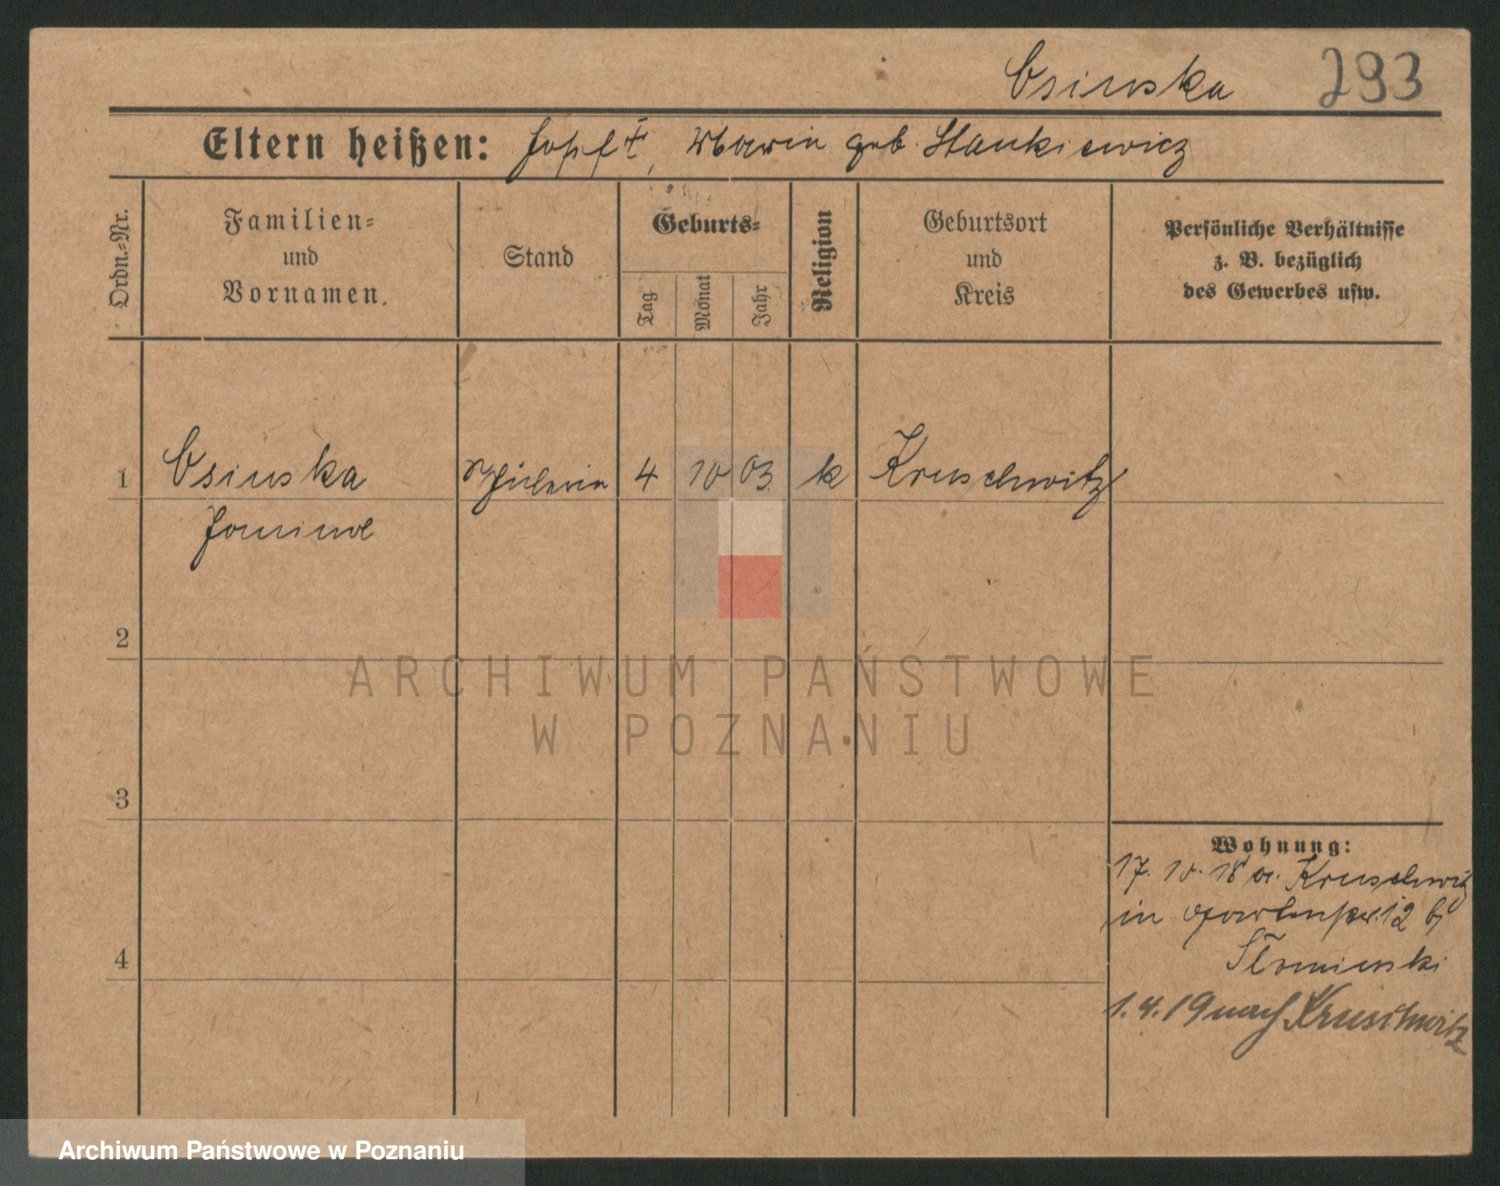 Osinska 293
Eltern heißen: Josef †, Maria geb. Stankiewicz
Ordn.-Nr.
Familien-
und
Vornamen.
Stand
Geburts-
Tag
Monat
Jahr
Religion
Geburtsort
und
Kreis
Persönliche Verhältnisse
z. B. bezüglich
des Gewerbes usw.
1 Osinska Schülerin 4 10 03. k Kruschwitz
Janina
2
3
4
Wohnung:
17. 10. 18 a. Kruschwitz
in 12 b/
1. 4. 19 nach Kruschwitz
ARCHIWUM PAŃSTWOWE
W POZNANIU
Archiwum Państwowe w Poznaniu